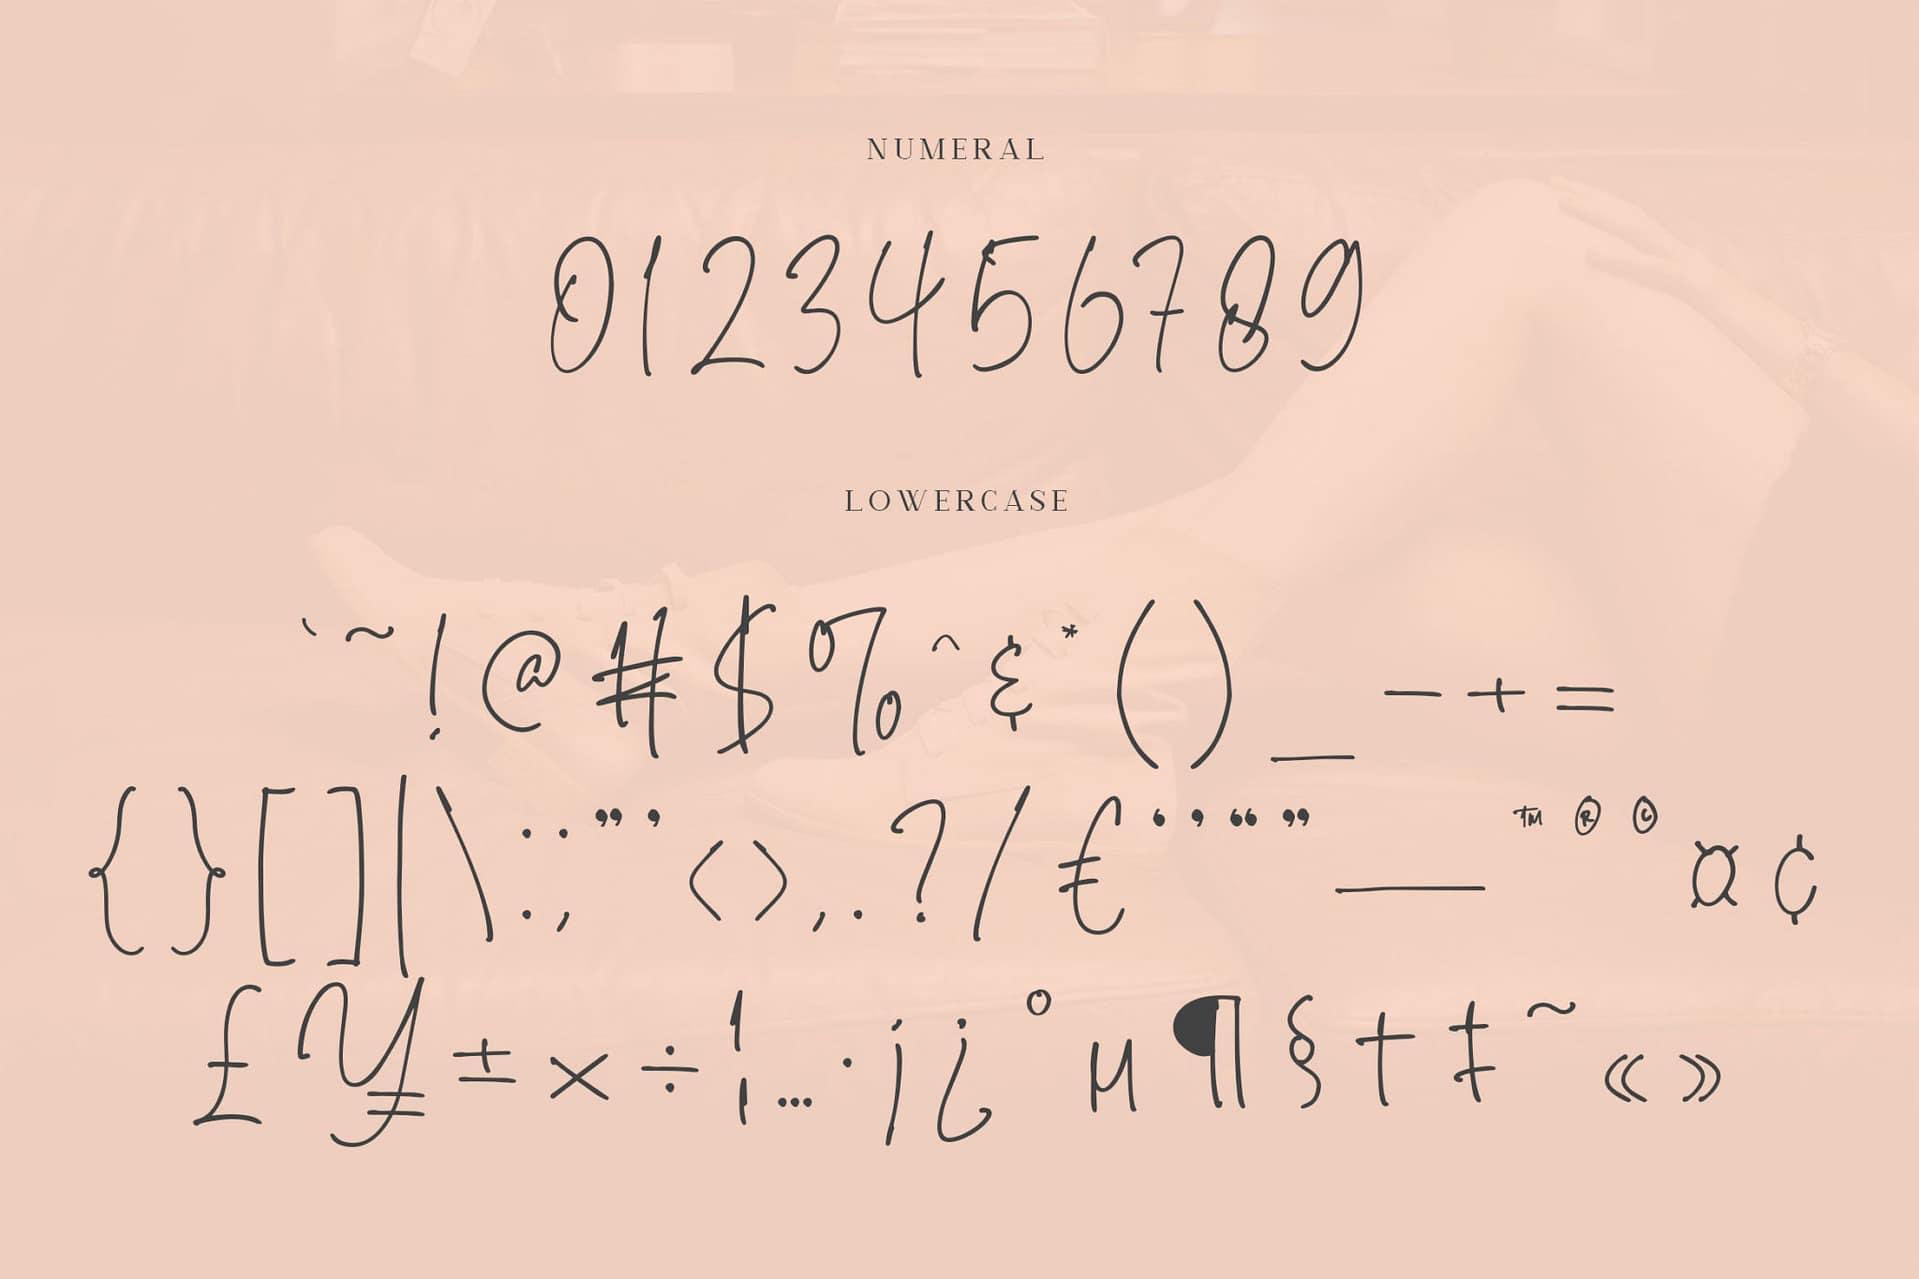 NUMERAL
0123456789
LOWERCASE
`~!@#$%^&*()_-+=
{}[]|\:;”’<>,.?/€‘’“”—™®©¤¢
£¥±×÷¦…·¡¿°µ¶§†‡~«»